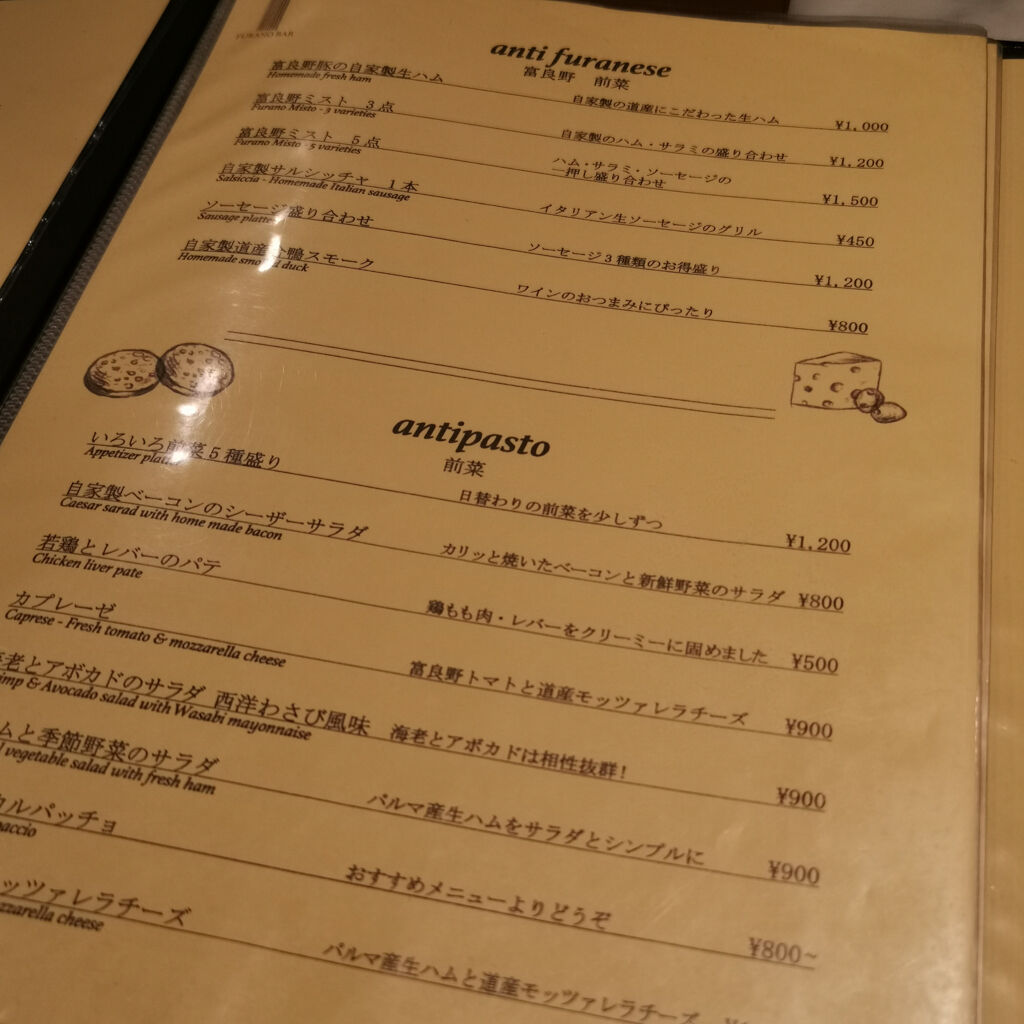 FURANO BAR
anti furanese
富良野 前菜
富良野豚の自家製生ハム
Homemade fresh ham
自家製の道産にこだわった生ハム ¥1,000
富良野ミスト 3点
Furano Misto - 3 varieties
自家製のハム・サラミの盛り合わせ ¥1,200
富良野ミスト 5点
Furano Misto - 5 varieties
ハム・サラミ・ソーセージの
一押し盛り合わせ ¥1,500
自家製サルシッチャ 1本
Salsiccia - Homemade Italian sausage
イタリアン生ソーセージのグリル ¥450
ソーセージ盛り合わせ
Sausage platte
ソーセージ3種類のお得盛り ¥1,200
自家製道産 鴨スモーク
Homemade smoked duck
ワインのおつまみにぴったり ¥800
antipasto
前菜
いろいろ前菜5種盛り
Appetizer platte
日替わりの前菜を少しずつ ¥1,200
自家製ベーコンのシーザーサラダ
Caesar sarad with home made bacon
カリッと焼いたベーコンと新鮮野菜のサラダ ¥800
若鶏とレバーのパテ
Chicken liver pate
鶏もも肉・レバーをクリーミーに固めました ¥500
カプレーゼ
Caprese - Fresh tomato & mozzarella cheese
富良野トマトと道産モッツァレラチーズ ¥900
老とアボカドのサラダ 西洋わさび風味
imp & Avocado salad with Wasabi mayonnaise
海老とアボカドは相性抜群! ¥900
ムと季節野菜のサラダ
l vegetable salad with fresh ham
パルマ産生ハムをサラダとシンプルに ¥900
カルパッチョ
paccio
おすすめメニューよりどうぞ ¥800~
ッツァレラチーズ
zzarella cheese
パルマ産生ハムと道産モッツァレラチーズ